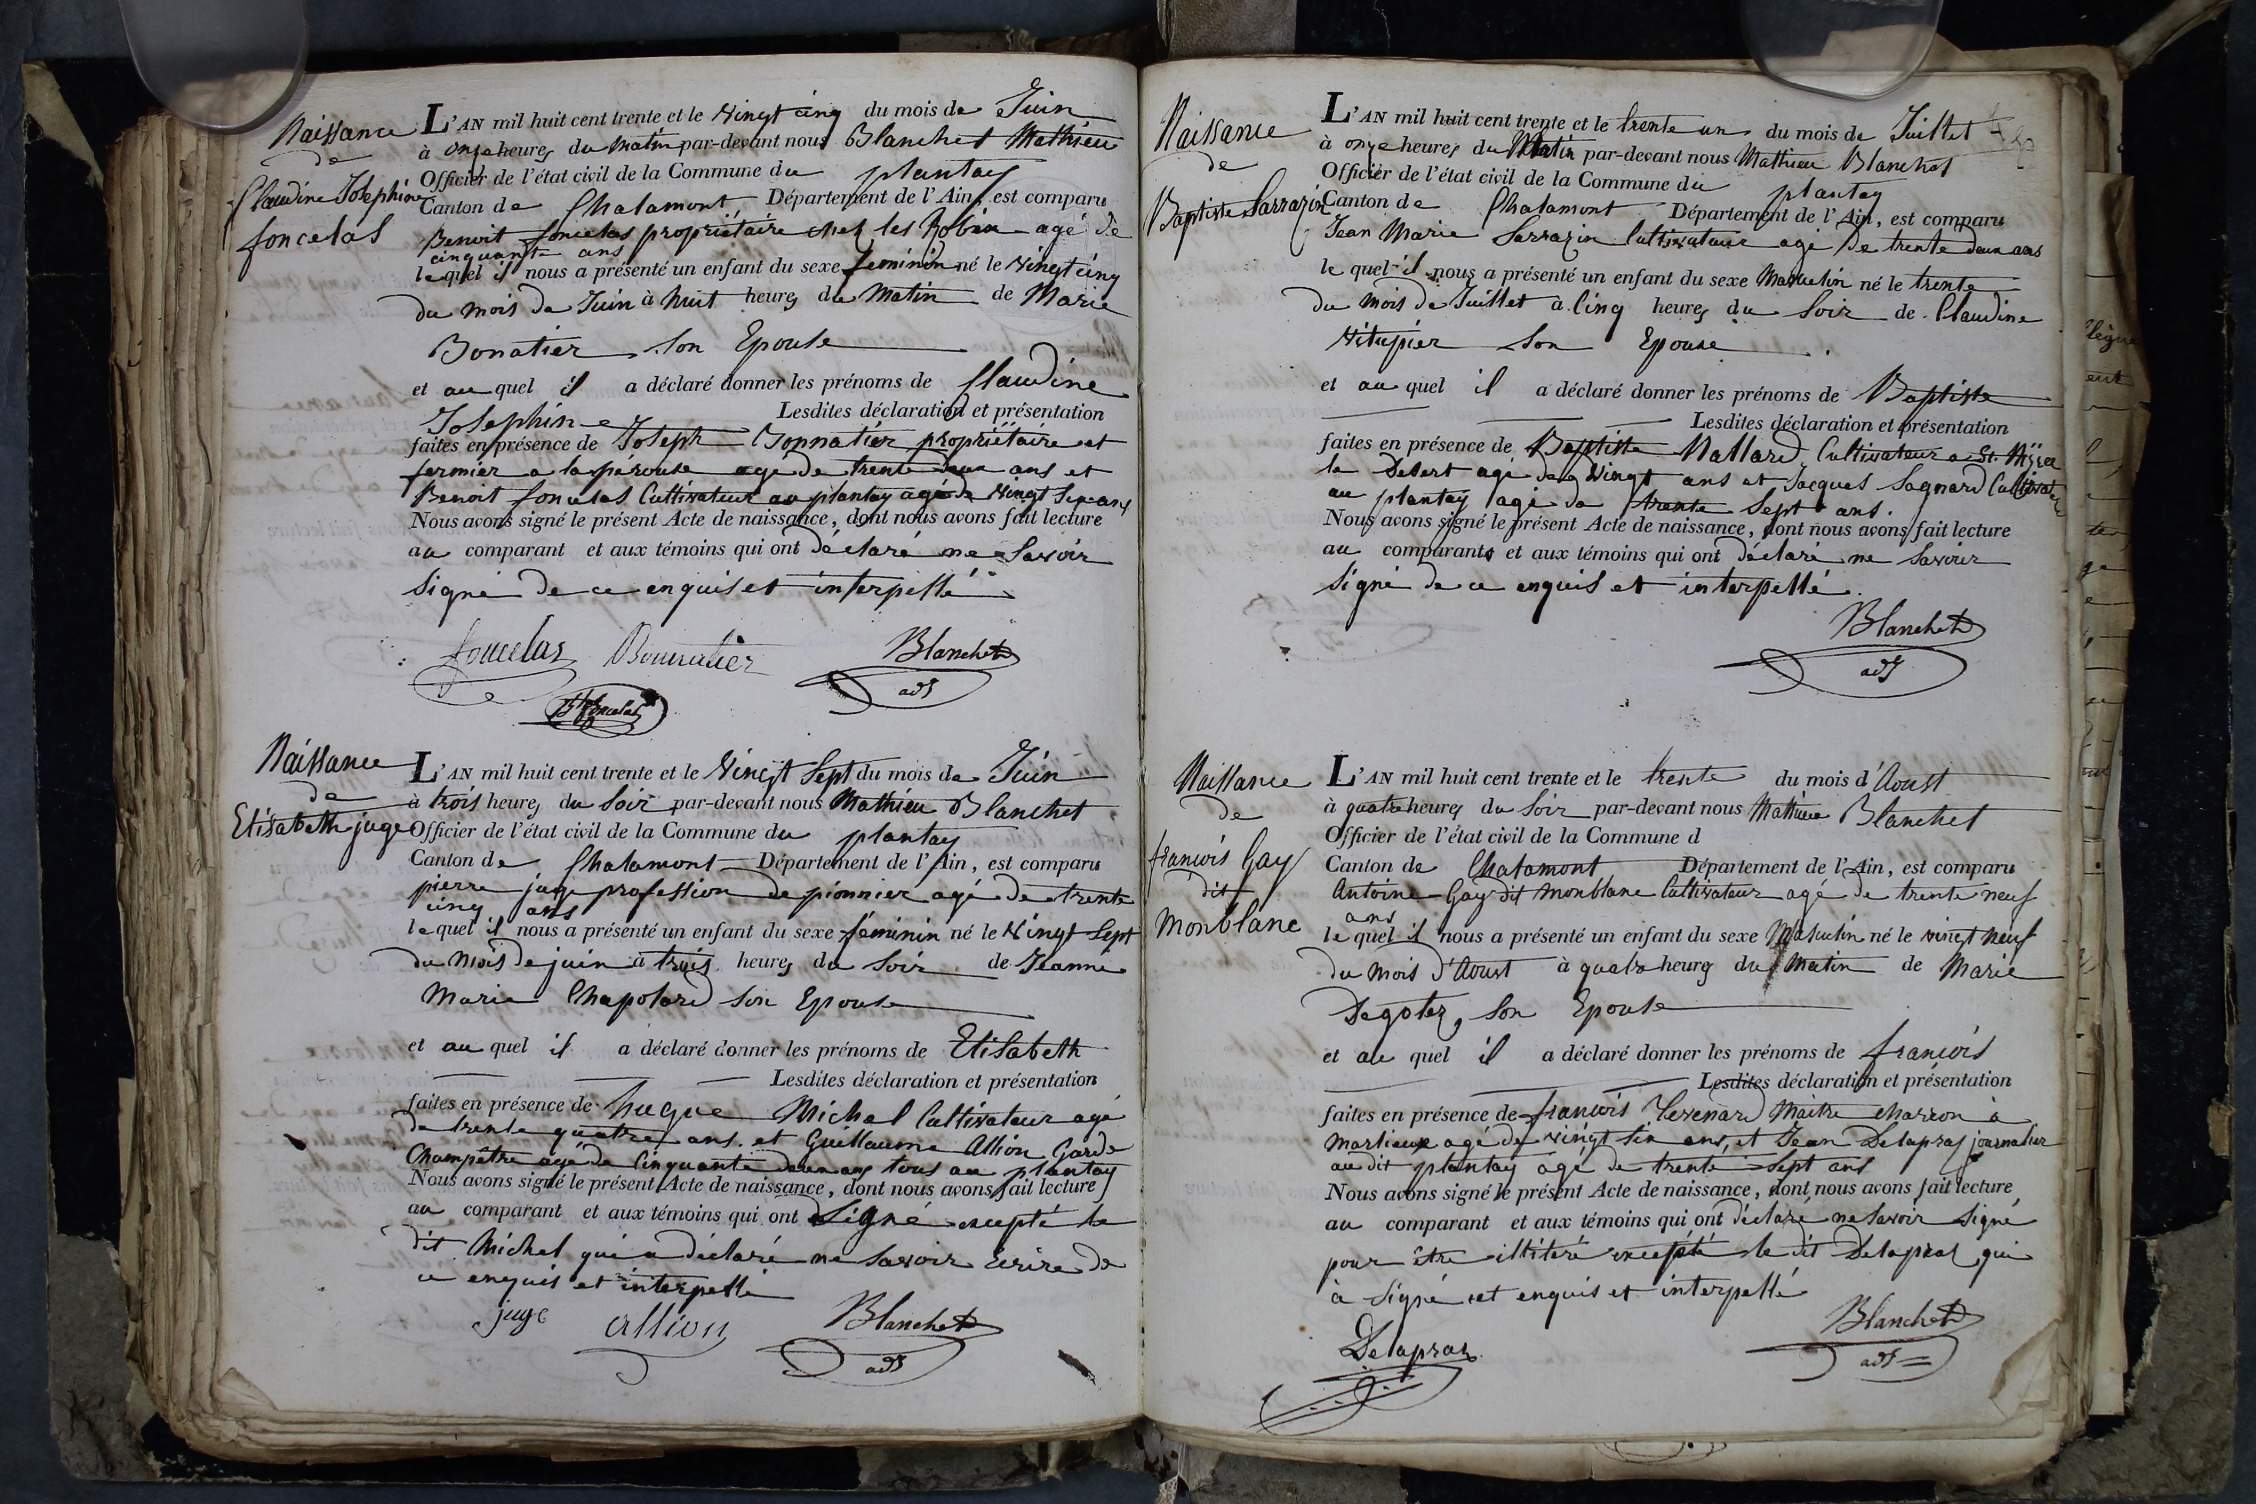 Naissance
de
Claudine Josephine
foncelas
L'AN mil huit cent trente et le Vingt cinq du mois de Juin
à onze heures du matin par-devant nous Blanchet Mathieu
Officier de l'état civil de la Commune du plantay
Canton de Chalamont Département de l'Ain, est comparu
Benoit foncelas propriétaire chez les Robin agé de
cinquante ans
le quel il nous a présenté un enfant du sexe feminin né le Vingt cinq
du mois de Juin à huit heures du Matin de Marie
Bonatier son Epouse
et au quel il a déclaré donner les prénoms de Claudine
Josephine Lesdites déclaration et présentation
faites en présence de Joseph Bonnatier propriétaire et
fermier a la pérouse agé de trente deux ans et
Benoit foncelas Cultivateur au plantay agé de Vingt Six ans
Nous avons signé le présent Acte de naissance, dont nous avons fait lecture
au comparant et aux témoins qui ont déclaré ne Savoir
Signé de ce enquis et interpellé
foncelas Bonnatier Blanchet
adj
Bt foncelas
Naissance
de
Elisabeth juge
L'AN mil huit cent trente et le Vingt Sept du mois de Juin
à trois heures du Soir par-devant nous Mathieu Blanchet
Officier de l'état civil de la Commune du plantay
Canton de Chalamont Département de l'Ain, est comparu
pierre juge profession de pionnier agé de trente
cinq ans
le quel il nous a présenté un enfant du sexe féminin né le Vingt Sept
du Mois de juin à trois heures du Soir de Jeanne
Marie Chapolard Son Epouse
et au quel il a déclaré donner les prénoms de Elisabeth
Lesdites déclaration et présentation
faites en présence de hugue Michel Cultivateur agé
de trente quatre ans et Guillaume Allion Garde
Champêtre agé de Cinquante deux ans tous au plantay
Nous avons signé le présent Acte de naissance, dont nous avons fait lecture
au comparant et aux témoins qui ont Signé excepté le
dit Michel qui a déclaré ne Savoir Ecrire de
ce enquis et interpellé
juge allion Blanchet
adj
Naissance
de
Baptiste Sarrazin
L'AN mil huit cent trente et le trente un du mois de Juillet
à onze heures du Matin par-devant nous Mathieu Blanchet
Officier de l'état civil de la Commune du plantay
Canton de Chalamont Département de l'Ain, est comparu
Jean Marie Sarrazin Cultivateur agé de trente deux ans
le quel il nous a présenté un enfant du sexe Masculin né le trente
du mois de Juillet à Cinq heures du Soir de Claudine
Vitupier Son Epouse
et au quel il a déclaré donner les prénoms de Baptiste
Lesdites déclaration et présentation
faites en présence de Baptiste Mallard Cultivateur a St. Nizier
le Desert agé de Vingt ans et Jacques Sagnard Cultivateur
au plantay agé de trente Sept ans.
Nous avons signé le présent Acte de naissance, dont nous avons fait lecture
au comparants et aux témoins qui ont déclaré ne Savoir
Signé de ce enquis et interpellé.
Blanchet
adj
Naissance
de
francois Gay
dit
Monblanc
L'AN mil huit cent trente et le trente du mois d'Aoust
à quatre heures du Soir par-devant nous Mathieu Blanchet
Officier de l'état civil de la Commune d
Canton de Chalamont Département de l'Ain, est comparu
Antoine Gay dit Monblanc Cultivateur agé de trente neuf
ans
le quel il nous a présenté un enfant du sexe Masculin né le vingt neuf
du mois d'Aoust à quatre heures du Matin de Marie
Degotez Son Epouse
et au quel il a déclaré donner les prénoms de francois
Lesdites déclaration et présentation
faites en présence de francois Maitre charron à
Marlieux agé de vingt Six ans, et Jean Delapraz journalier
au dit plantay agé de trente Sept ans
Nous avons signé le présent Acte de naissance, dont nous avons fait lecture
au comparant et aux témoins qui ont déclaré ne Savoir Signé
pour être illitéré excepté le dit Delapraz qui
à Signé et enquis et interpellé
Delapraz Blanchet
adj